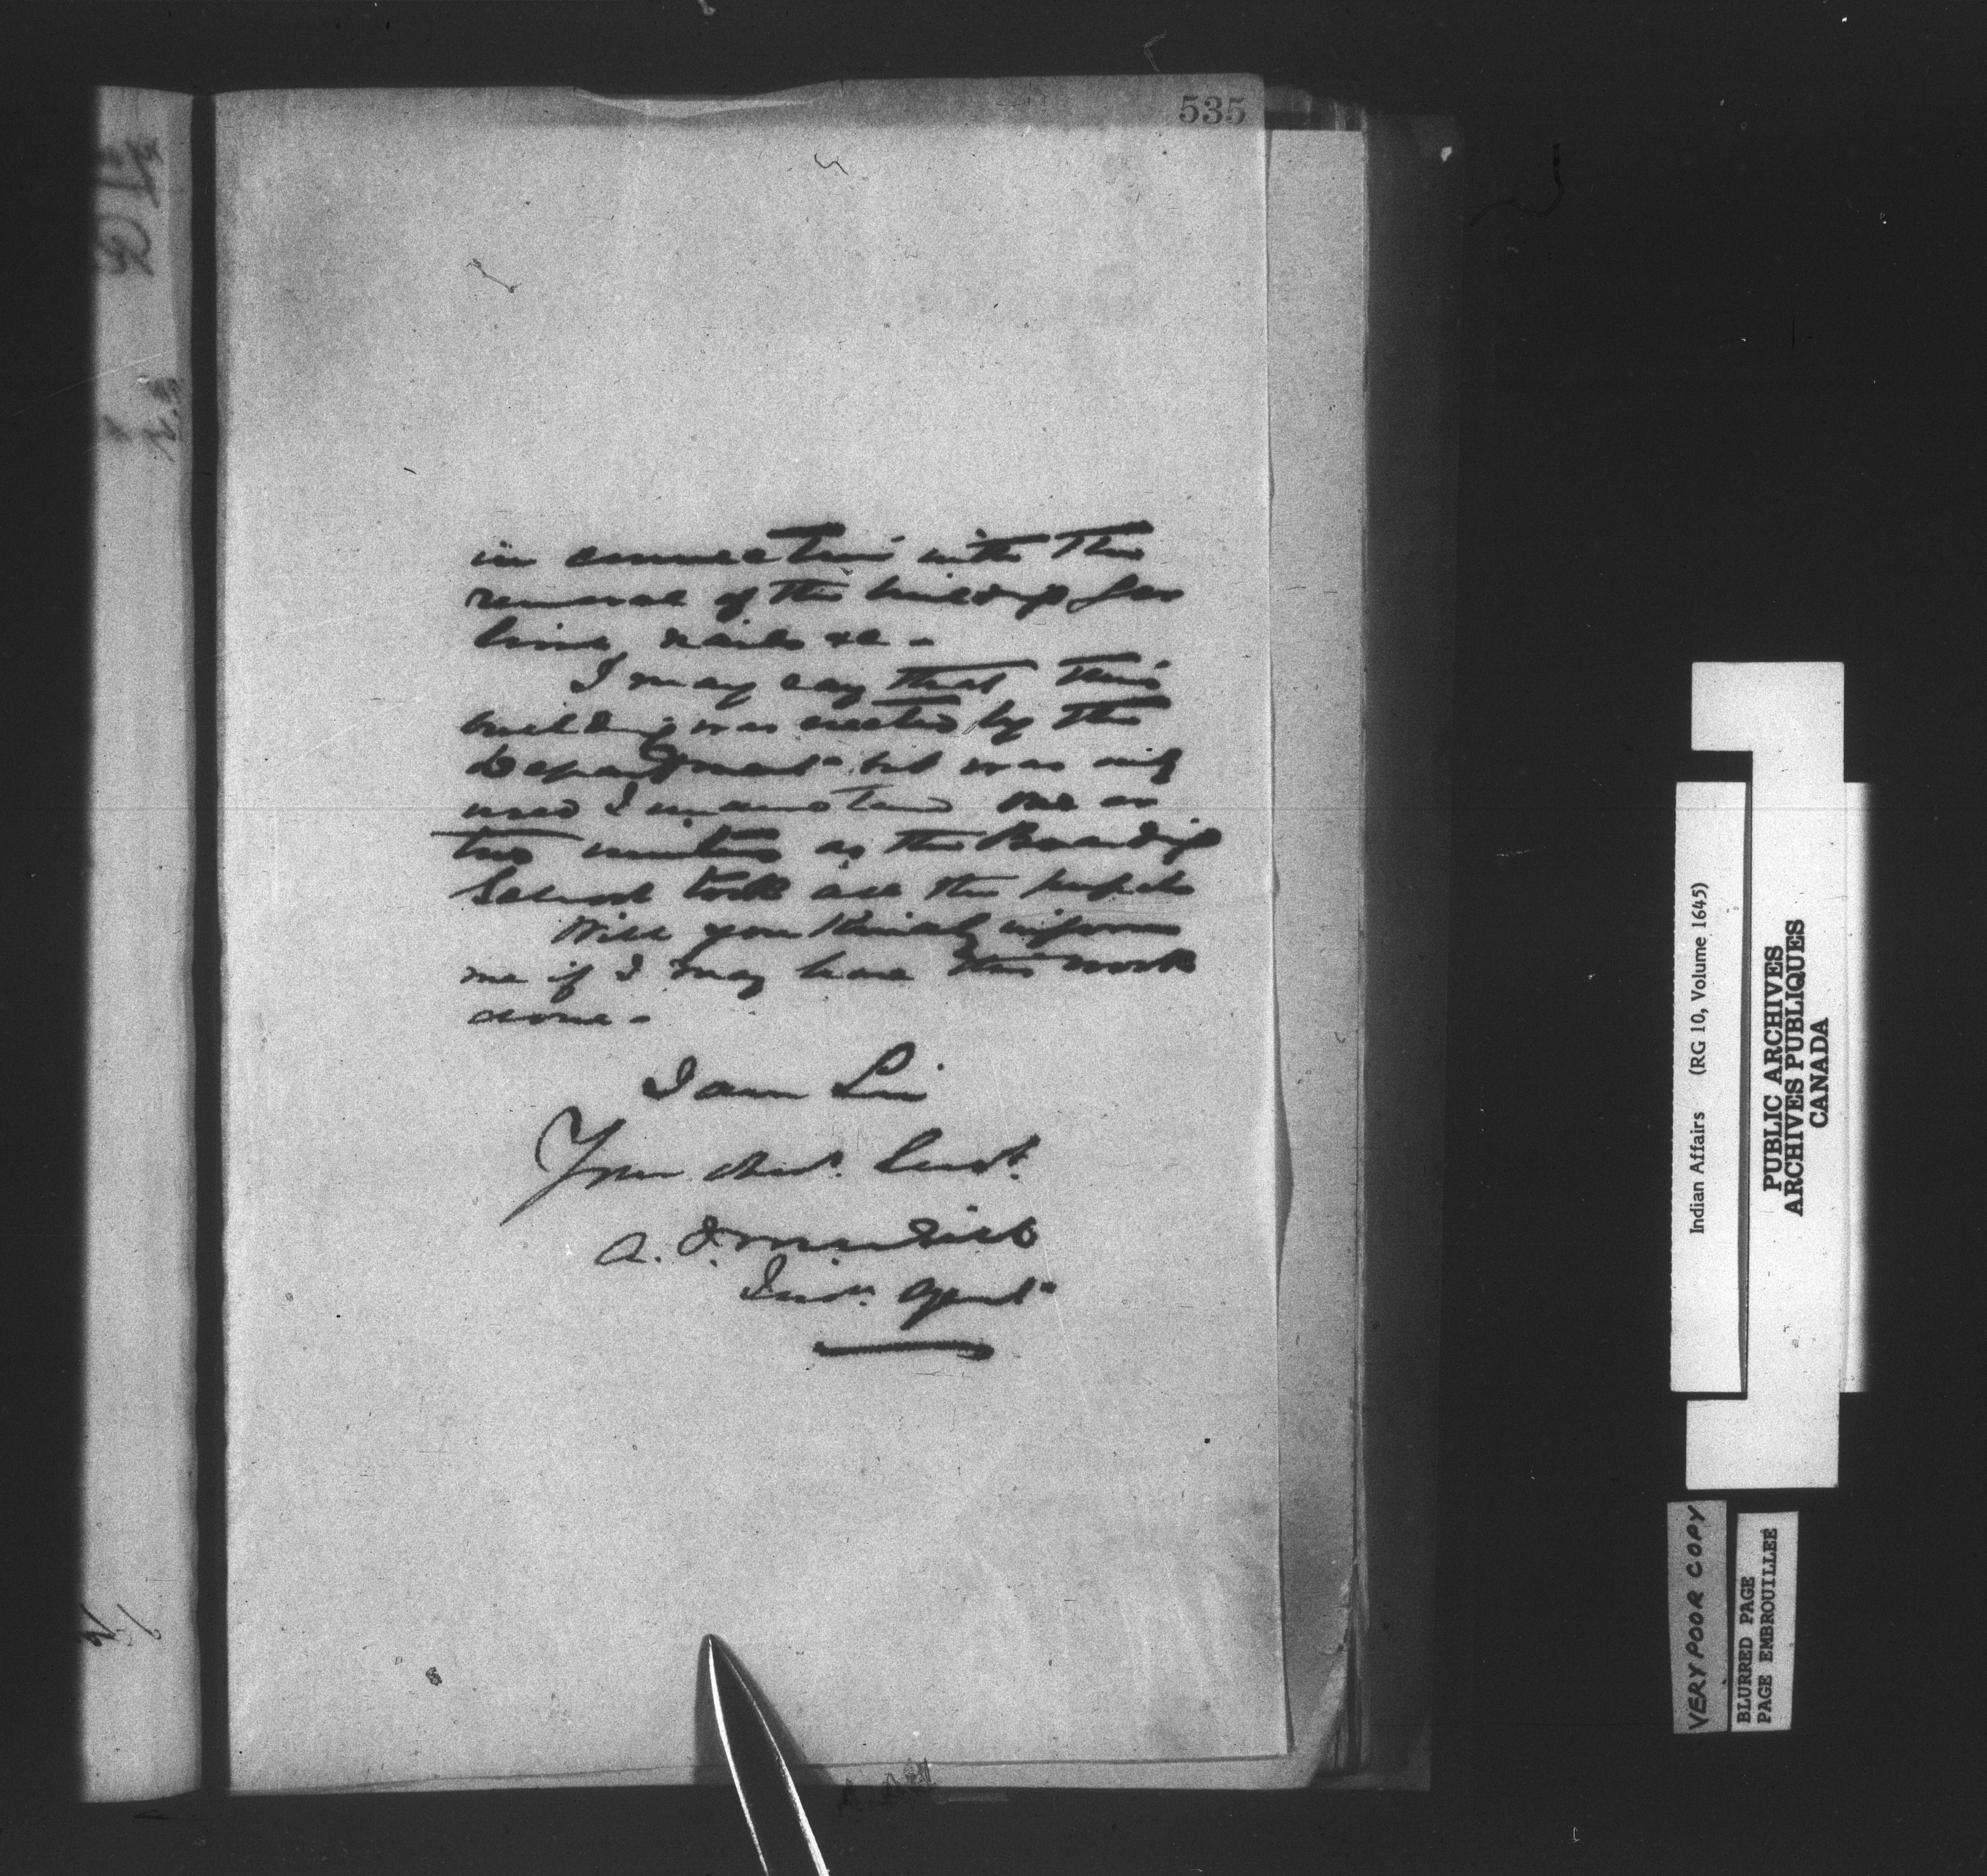 535
in connection with the
removal of the building for
lime, nails &c -
I may say that this
building was erected by the
Department but was only
used I understand one or
two winters as the Boarding
School took all the pupils
Will you kindly inform
me if I may have this work
done -
I am Sir
Your obed. Servt.
A. J. McNeill
Ind. Agent
Indian Affairs (RG 10, Volume 1645)
PUBLIC ARCHIVES
ARCHIVES PUBLIQUES
CANADA
VERY POOR COPY
BLURRED PAGE
PAGE EMBROUILLEE